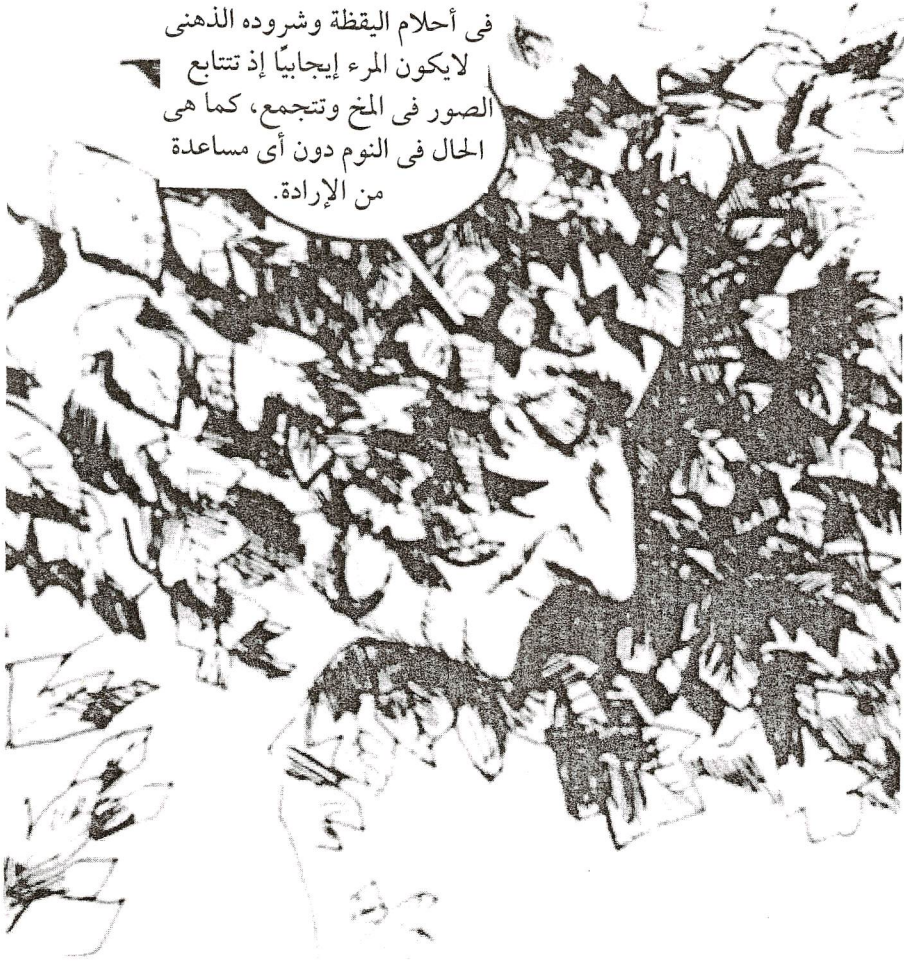 فى أحلام اليقظة وشروده الذهنى
لايكون المرء إيجابيًا إذ تتتابع
الصور فى المخ وتتجمع، كما هى
الحال فى النوم دون أى مساعدة
من الإرادة.